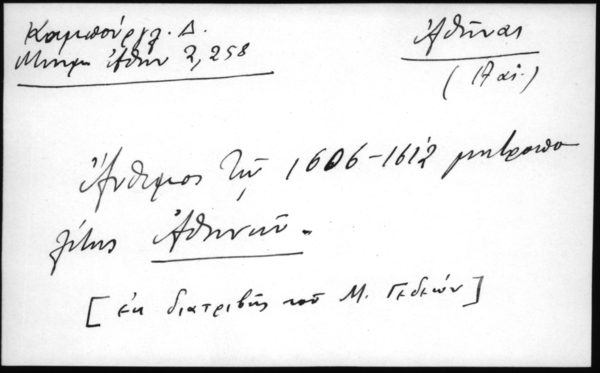 Καμπούργλ. Δ.
Μνημ Ἀθην 2, 258
Ἀθήνας
( Παϊ. )
Ἄνθιμος τῷ 1606-1612 μητροπο
λίτης Ἀθηνῶν.
[ ἐκ διατριβῆς τοῦ Μ. Γεδεών ]